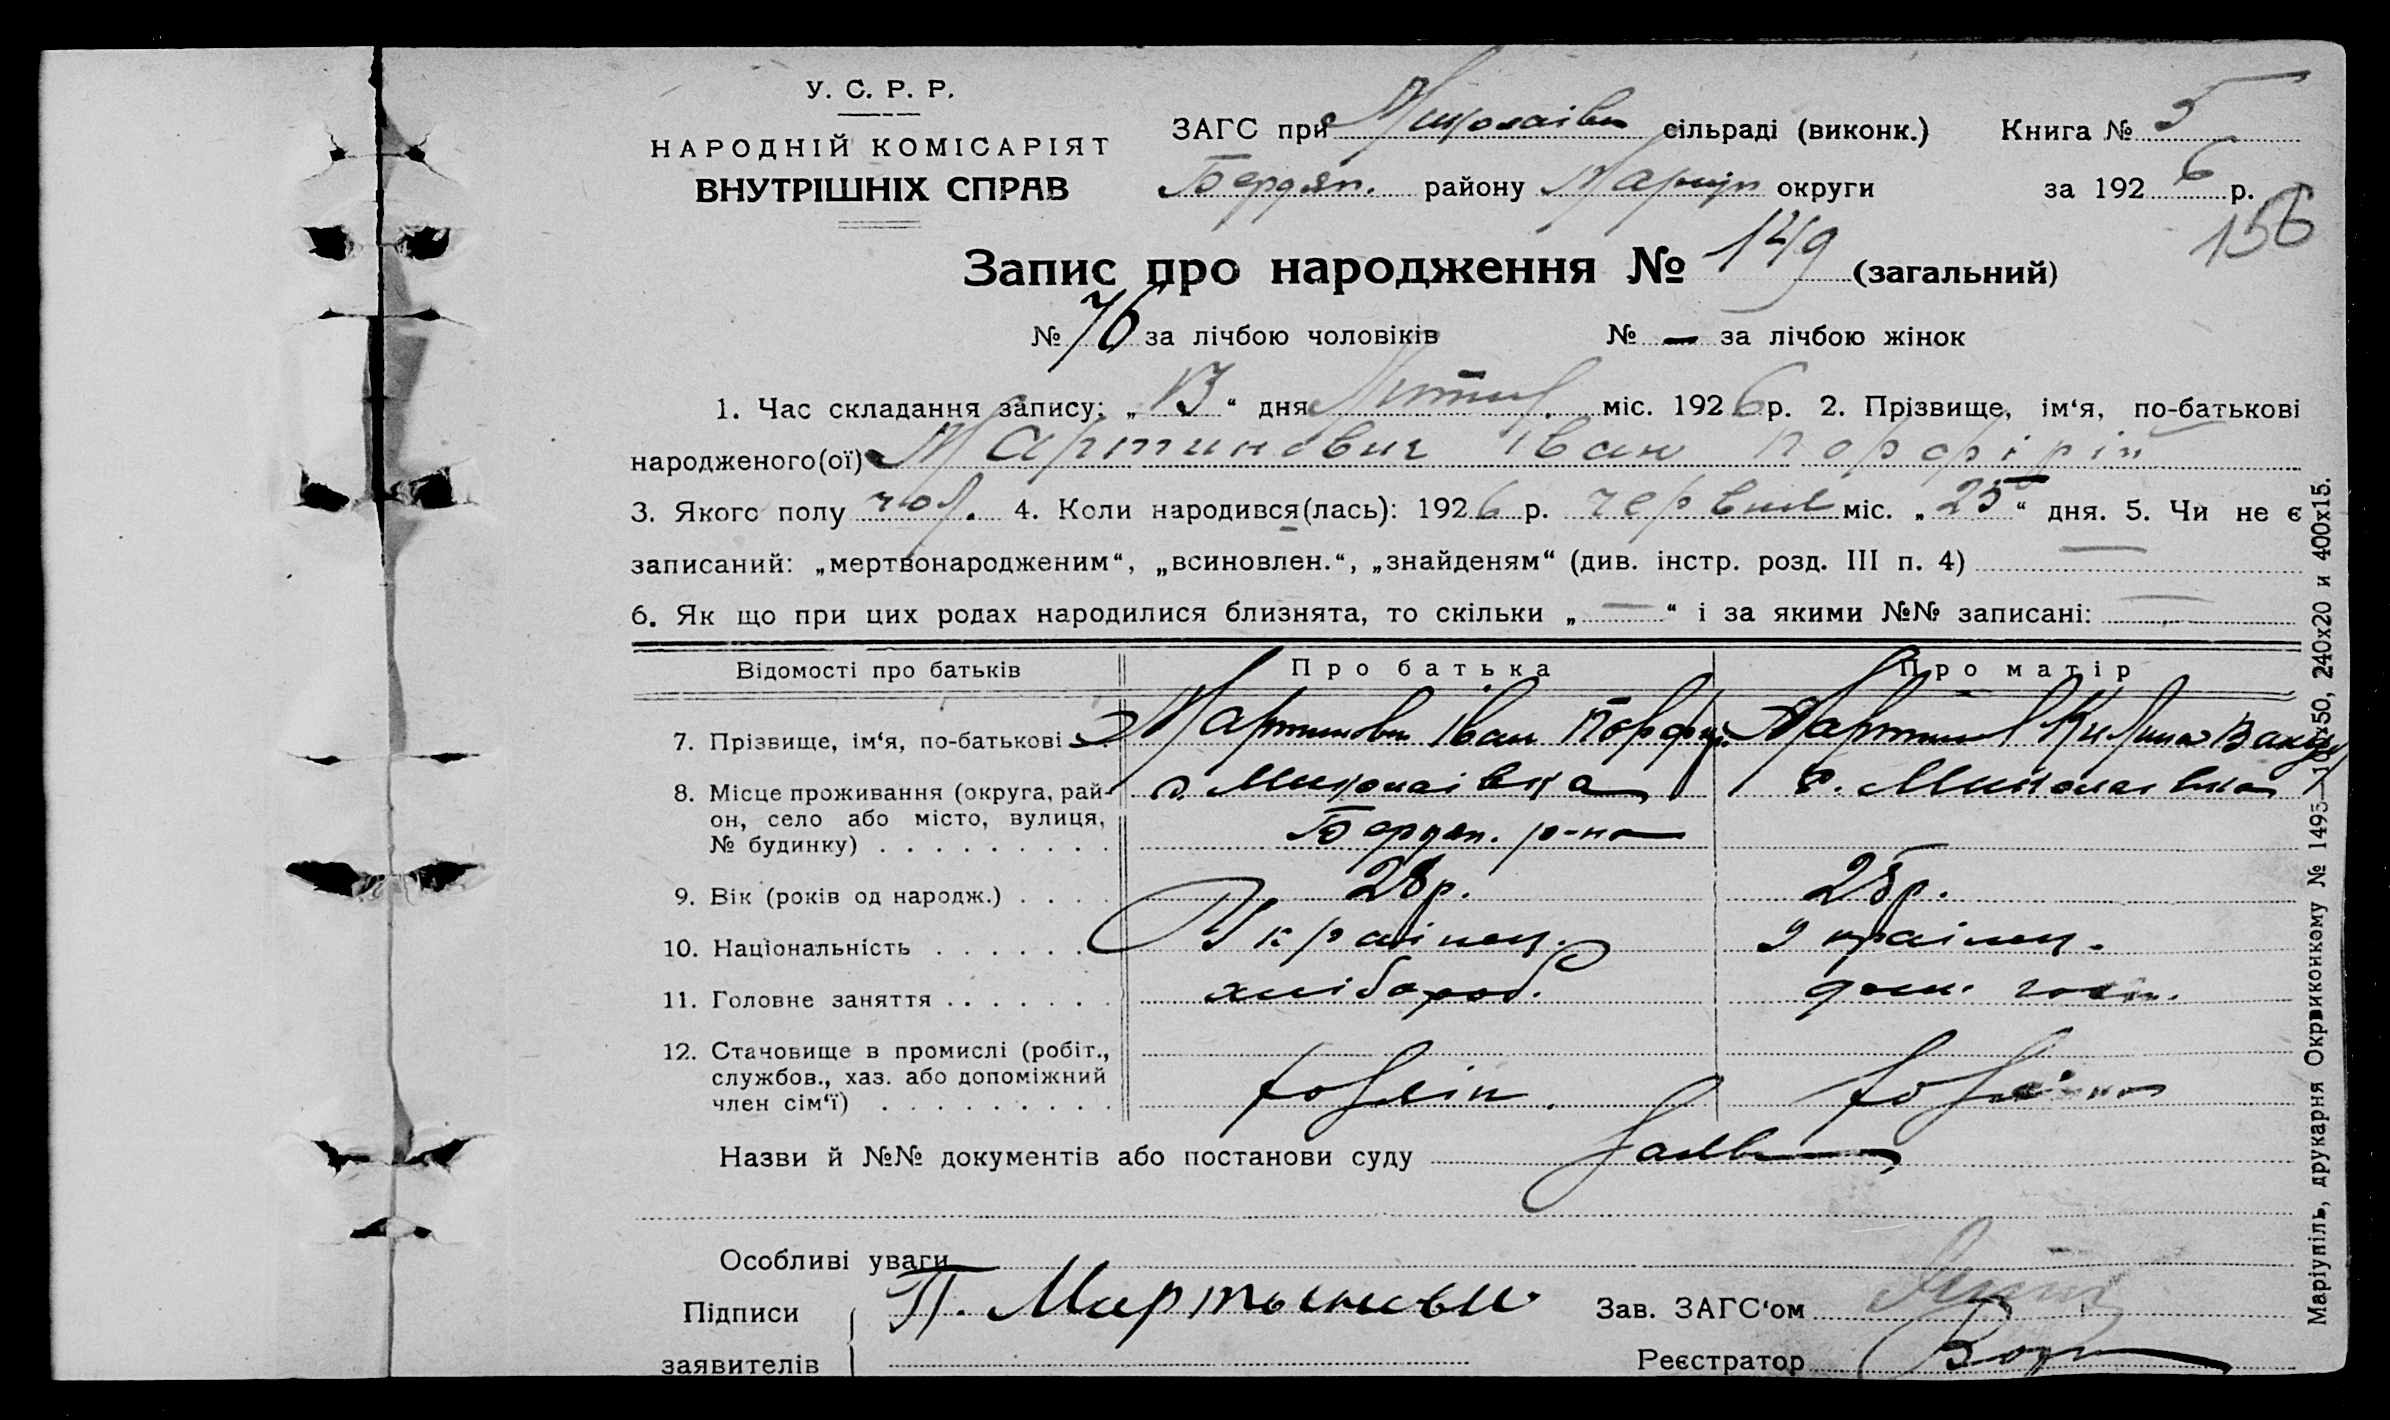 У. С. Р. Р.
НАРОДНІЙ КОМІСАРІЯТ
ВНУТРІШНІХ СПРАВ
ЗАГС при Миколаївк сільраді (виконк.) Книга № 5
Бердян. району Маріуп округи за 1926 р.
156
Запис про народження № 149 (загальний)
№ 76 за лічбою чоловіків № — за лічбою жінок
1. Час складання запису: „13“ дня міс. 1926 р. 2. Прізвище, ім‘я, по-батькові
народженого(ої) Мартинович Іван Порфірій
3. Якого полу чол. 4. Коли народився(лась): 1926 р. червня міс. „25“ дня. 5. Чи не є
записаний: „мертвонародженим“, „всиновлен.“, „знайденям“ (див. інстр. розд. III п. 4) —
6. Як що при цих родах народилися близнята, то скільки „—“ і за якими №№ записані: —
Відомості про батьків Про батька Про матір
7. Прізвище, ім‘я, по-батькові Мартинович Іван Порфир. Мартинов Килина
8. Місце проживання (округа, рай- с. Миколаівка с. Миколаівка
он, село або місто, вулиця, Бердян. р-на
№ будинку)
9. Вік (років од народж.) 28 р. 25 р.
10. Національність Украінец. Украінец.
11. Головне заняття хлібороб. дом. госп.
12. Становище в промислі (робіт.,
службов., хаз. або допоміжний
член сім‘ї)
Назви й №№ документів або постанови суду Заява
Особливі уваги
Підписи П. Мартынови Зав. ЗАГС‘ом
заявителів Реєстратор
Маріупіль, друкарня Окрвиконкому № 1493—10х50, 240х20 и 400х15.